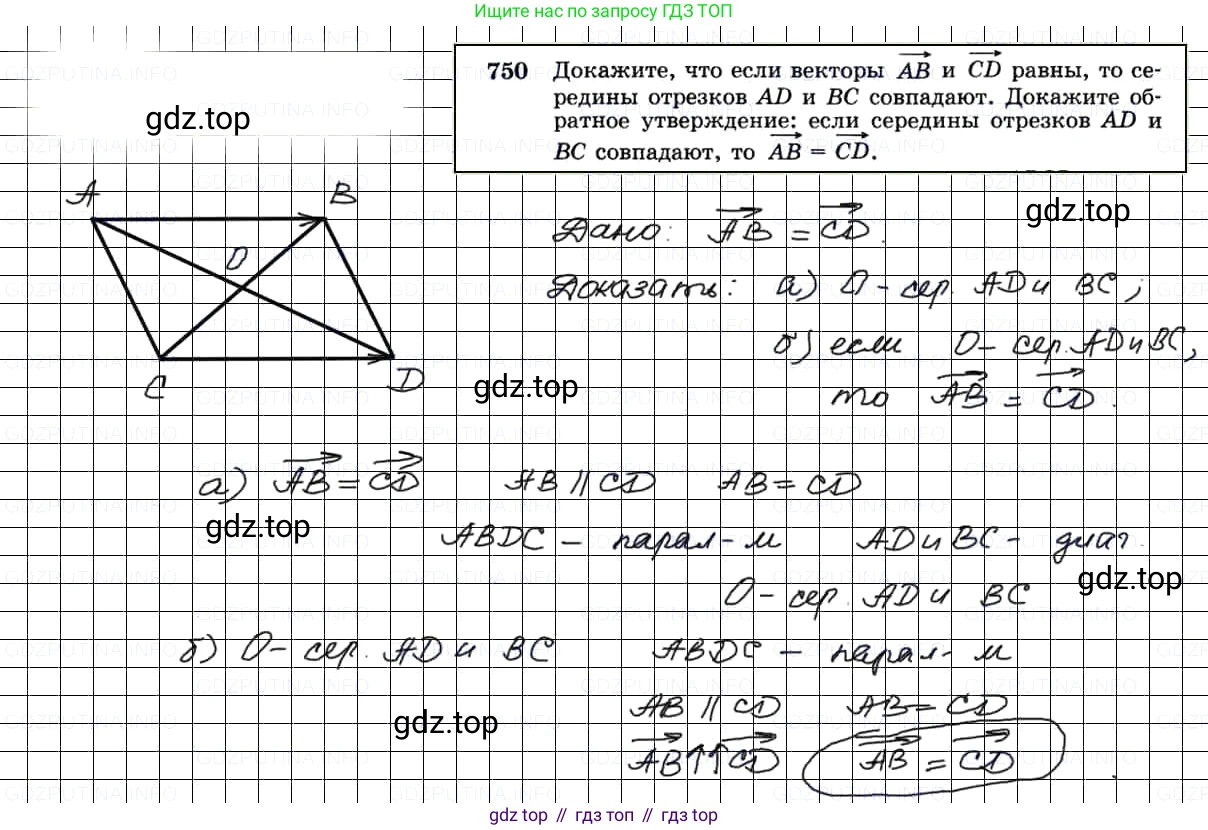 Ищите нас по запросу ГДЗ ТОП
750 Докажите, что если векторы AB и CD равны, то се-
редины отрезков AD и BC совпадают. Докажите об-
ратное утверждение: если середины отрезков AD и
BC совпадают, то AB = CD.
gdz.top
A B
O
C D
gdz.top
Дано: AB = CD.
Доказать: а) O - сер. AD и BC;
б) если O - сер. AD и BC,
то AB = CD.
gdz.top
а) AB = CD AB || CD AB = CD
gdz.top
ABDC - парал-м AD и BC - диаг.
gdz.top
O - сер. AD и BC
б) O - сер. AD и BC ABDC - парал-м
AB || CD AB = CD
gdz.top
AB ↑↑ CD AB = CD.
gdz top // гдз топ // gdz.top
GDZPUTINA.INFO